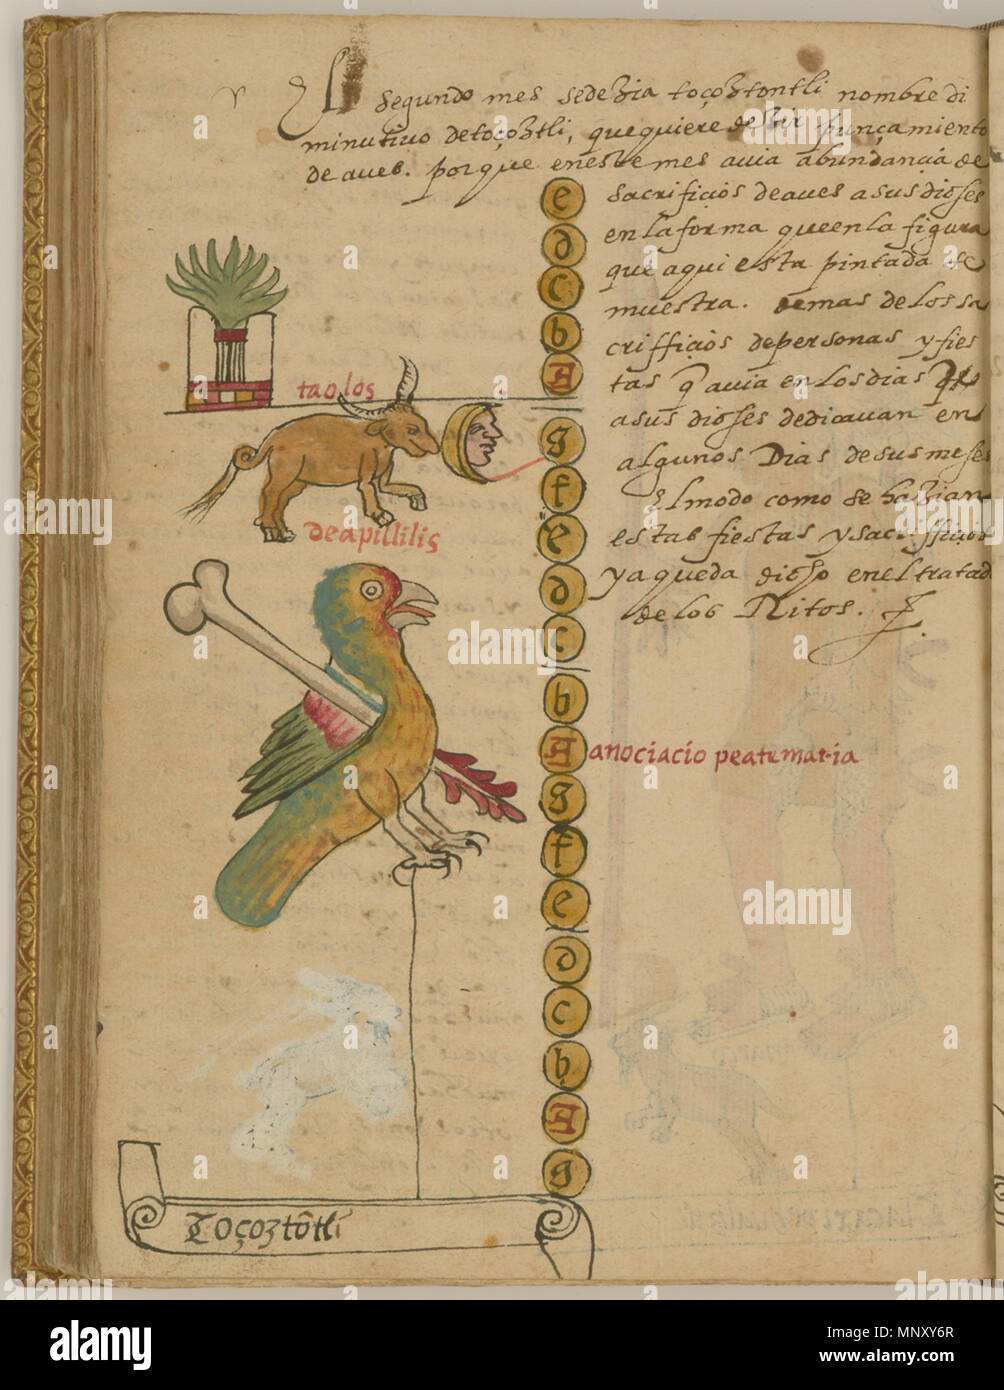 El segundo mes sedezia toçoztontli nombre di
minutivo detoçoztli, quequiere dezir punçamiento
de aues. porque eneste mes auia abundançia de
sacrifiçios deaues asusdioses
enlaforma queenla figura
que aqui esta pintada se
muestra. demas delossa
crifficios depersonas yfies
tas q̃ auia enlosdias q̃
asus dioses dedicauan en
algunos Dias desusmeses
Elmodo como se hazian
estas fiestas ysacrifficios
yaqueda dicho eneltratado
de los Ritos.
taolos
deapillilis
e
d
c
b
A
g
f
e
d
c
b
A
anociacio peatemaria
g
f
e
d
c
b
A
g
Toçoztõtli
março
alamy
alamy
Image ID: MNXY6R
www.alamy.com